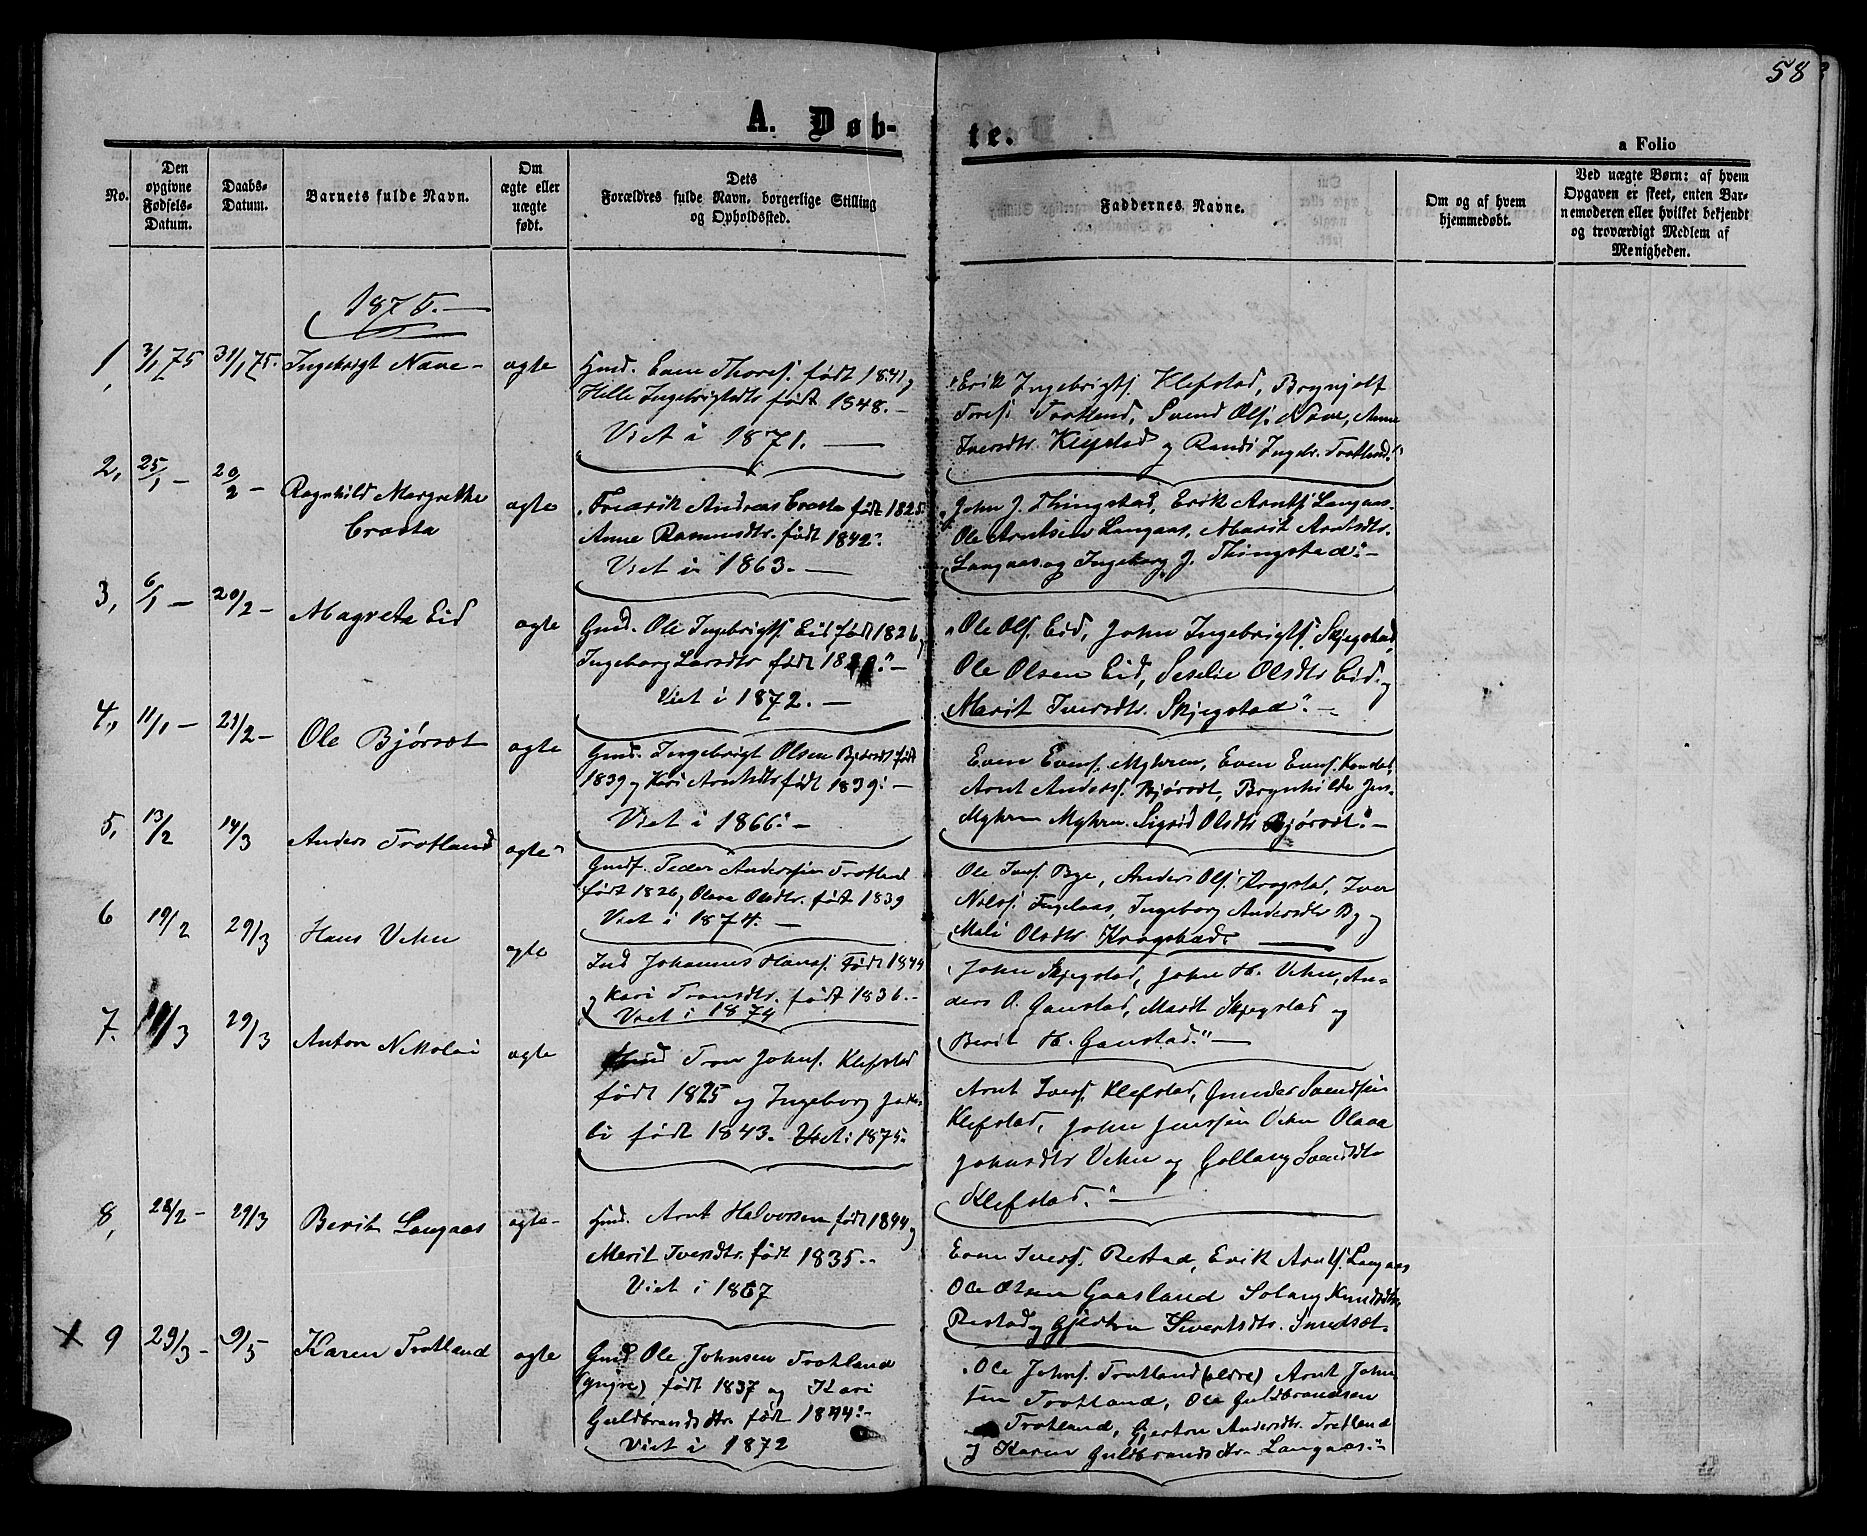 58
A. Døb-
te.
a Folio
No.
Den
opgivne
Fødsels-
Datum.
Daabs-
Datum.
Barnets fulde Navn.
Om
ægte eller
uægte
født.
Dets
Forældres fulde Navn, borgerlige Stilling
og Opholdssted.
Faddernes Navne.
Om og af hvem
hjemmedøbt.
Ved uægte Børn: af hvem
Opgaven er skeet, enten Bar-
nemoderen eller hvilket bekjendt
og troværdigt Medlem af
Menigheden.
1875.
1, 3/1 75 31/1 75. Ingebrigt Nave - ægte
Evens Thores. født 1841 og
Hille Ingebrigtsdtr født 1848. -
Viet i 1871. -
Erik Ingebrigts. Klefstad, Brynjolf
Tores. Trotland, Svend Ols. Nave, Anne
Iversdtr. Klefstad og Randi Ingebr. Trotland."
2, 25/1 - 20/2 - Ragnhild Margrethe
Crosta
ægte
Fredrik Andreas Crosta født 1825
Anne Rasmusdtr. født 1842."
Viet i 1863. -
John J. Thingstad, Erik Arnts. Langaas.
Ole Arntsen Langaas, Marit Arntsdtr.
Langaas og Ingeborg J. Thingstad." -
3, 6/1 - 20/2 - Magreta Eid ægte
Gmd. Ole Ingebrigts. Eid født 1826,
Ingeborg Larsdtr født
Viet i 1872. -
"Ole Ols. Eid, John Ingebrigts. Skjegstad,
Ole Olsen Eid, Seselie Olsdtr Eid og
Marit Iversdtr. Skjegstad". -
4, 11/1 - 21/2 - Ole Bjørset ægte
Gmd. Ingebrigt Olsen Bjørset født
1839 og Kari Arntsdtr født 1839." -
Viet i 1866." -
Even Evens. Myhren, Even Evens.
Arnt Anderss. Bjørset, Brynhilde Jens
Myhren Myhren. Sigrid Olsdtr Bjørset." -
5, 13/2 14/3 Anders Trotland ægte"
Peder Anderssen Trotland
født 1826, Olava Olsdtr. født 1839
Viet i 1874. -
Ole Ivers. Bye, Anders Ols. Krogstad, Iver
Nils. Fuglaas, Ingeborg Andersdtr By og
Mali Olsdtr Krogstad. -
6 19/2 29/3 Hans Vehn ægte
Ind Johannes Hanss. Født 1844
og Kari Tronsdtr. født 1836. -
Viet i 1874
John Skjegstad, John H. Vehn, An-
ders O. Ganstad, Marit Skjegstad og
Berit H. Ganstad." -
7. 29/3 Anton Nikolai ægte
Tron Johns. Klefstad
født 1825 og Ingeborg
født 1843. Viet i 1875.
Arnt Ivers. Klefstad, Gunder Svendsen
Klefstad, John Jenssen Vehn Olava
Johnsdtr Vehn og Gollaug Svendsdtr
Klefstad." -
8, 28/2 - 29/3 Berit Langaas ægte -
Arnt Halvorsen født 1844 og
Marit Iversdtr. født 1835. -
Viet i 1867
Even Ivers. Restad, Erik Arnts. Langaas
Ole Olsen Gaasland Solaug Knudsdtr.
Restad og Gjertru Sivertsdtr. Smedsæt -
x 9 29/3 - 9/5 Karen Trotland ægte
Gmd Ole Johnsen Trotland
(yngre) født 1837 og Kari
Guldbrandsdtr. født 1844." -
Viet i 1872
"Ole Johns. Trotland (eldre) Arnt John
sen Trotland, Ole Guldbrandsen
Trotland, Gjertru Andersdtr. Trotland
og Karen Guldbrandsdtr. Langaas." -